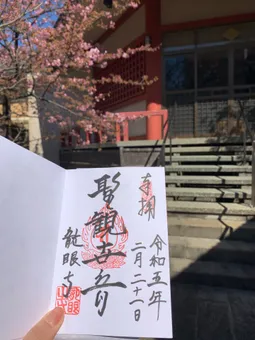 奉拝
令和五年
二月二十一日
聖観世音
龍眼寺